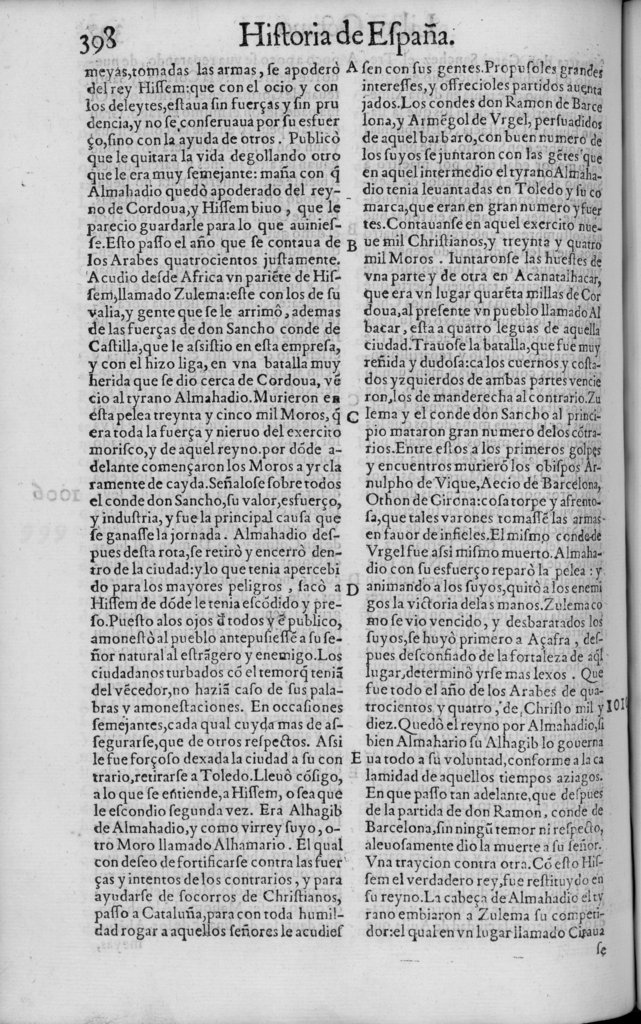 398 Historia de España.
meyas, tomadas las armas, se apoderò
del rey Hissem: que con el ocio y con
los deleytes, estaua sin fuerças y sin pru
dencia, y no se conseruaua por su esfuer
ço, sino con la ayuda de otros. Publicò
que le quitara la vida degollando otro
que le era muy semejante: maña con q̃
Almahadio quedò apoderado del rey-
no de Cordoua, y Hissem biuo, que le
parecio guardarle para lo que auinies-
se. Esto passo el año que se contaua de
los Arabes quatrocientos justamente.
Acudio desde Africa vn pariẽte de His-
sem, llamado Zulema: este con los de su
valia, y gente que se le arrimò, ademas
de las fuerças de don Sancho conde de
Castilla, que le assistio en esta empresa,
y con el hizo liga, en vna batalla muy
herida que se dio cerca de Cordoua, vẽ
cio al tyrano Almahadio. Murieron en
esta pelea treynta y cinco mil Moros, q̃
era toda la fuerça y nieruo del exercito
morisco, y de aquel reyno. por dõde a-
delante començaron los Moros a yr cla
ramente de cayda. Señalose sobre todos
el conde don Sancho, su valor, esfuerço,
y industria, y fue la principal causa que
se ganasse la jornada. Almahadio des-
pues desta rota, se retirò y encerrò den-
tro de la ciudad: y lo que tenia apercebi
do para los mayores peligros, sacò a
Hissem de dõde le tenia escõdido y pre-
so. Puesto alos ojos d̃ todos y ẽ publico,
amonestò al pueblo antepusiessẽ a su se-
ñor natural al estrãgero y enemigo. Los
ciudadanos turbados cõ el temor q̃ teniã
del vẽcedor, no haziã caso de sus pala-
bras y amonestaciones. En occasiones
semejantes, cada qual cuyda mas de as-
segurarse, que de otros respectos. Assi
le fue forçoso dexada la ciudad a su con
trario, retirarse a Toledo. Lleuò cõsigo,
a lo que se entiende, a Hissem, o sea que
le escondio segunda vez. Era Alhagib
de Almahadio, y como virrey suyo, o-
tro Moro llamado Alhamario. El qual
con deseo de fortificarse contra las fuer
ças y intentos de los contrarios, y para
ayudarse de socorros de Christianos,
passo a Cataluña, para con toda humil-
dad rogar a aquellos señores le acudies
A sen con sus gentes. Propusoles grandes
interesses, y offrecioles partidos auenta
jados. Los condes don Ramon de Barce
lona, y Armẽgol de Vrgel, persuadidos
de aquel barbaro, con buen numero de
los suyos se juntaron con las gẽtes que
en aquel intermedio el tyrano Almaha-
dio tenia leuantadas en Toledo y su co
marca, que eran en gran numero y fuer
tes. Contauanse en aquel exercito nue-
B ue mil Christianos, y treynta y quatro
mil Moros. Iuntaronse las huestes de
vna parte y de otra en Acanatalhacar,
que era vn lugar quarẽta millas de Cor
doua, al presente vn pueblo llamado Al
bacar, esta a quatro leguas de aquella
ciudad. Trauose la batalla, que fue muy
reñida y dudosa: ca los cuernos y costa-
dos yzquierdos de ambas partes vencie
ron, los de manderecha al contrario. Zu
C lema y el conde don Sancho al princi-
pio mataron gran numero delos cõtra-
rios. Entre estos a los primeros golpes
y encuentros murierõ los obispos Ar-
nulpho de Vique, Aecio de Barcelona,
Othon de Girona: cosa torpe y afrento-
sa, que tales varones tomassẽ las armas
en fauor de infieles. El mismo conde de
Vrgel fue assi mismo muerto. Almaha-
dio con su esfuerço reparò la pelea: y
D animando a los suyos, quitò a los enemi
gos la victoria delas manos. Zulema co
mo se vio vencido, y desbaratados los
suyos, se huyò primero a Açafra, des-
pues desconfiado de la fortaleza de aq̃l
lugar, determinò yrse mas lexos. Que
fue todo el año de los Arabes de qua-
trocientos y quatro, de Christo mil y 1010
diez. Quedò el reyno por Almahadio, si
bien Almahario su Alhagib lo gouerna
E ua todo a su voluntad, conforme a la ca
lamidad de aquellos tiempos aziagos.
En que passo tan adelante, que despues
de la partida de don Ramon, conde de
Barcelona, sin ningũ temor ni respecto,
aleuosamente dio la muerte a su señor.
Vna traycion contra otra. Cõ esto His-
sem el verdadero rey, fue restituydo en
su reyno. La cabeça de Almahadio el ty
rano embiaron a Zulema su competi-
dor: el qual en vn lugar llamado Ciraua
se